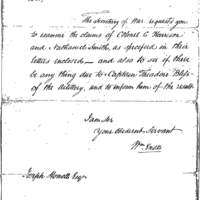 The Secretary of War requests you
to examine the claims of Colonel C Harrison
and Nathaniel Smith, as specified in their
letters enclosed — and also to see if there
be any thing due to Captain Theodore
of the artillery, and to inform him of the result
I am Sir
Your Obedient Servant
Wm Knox
Joseph Howell Esqr